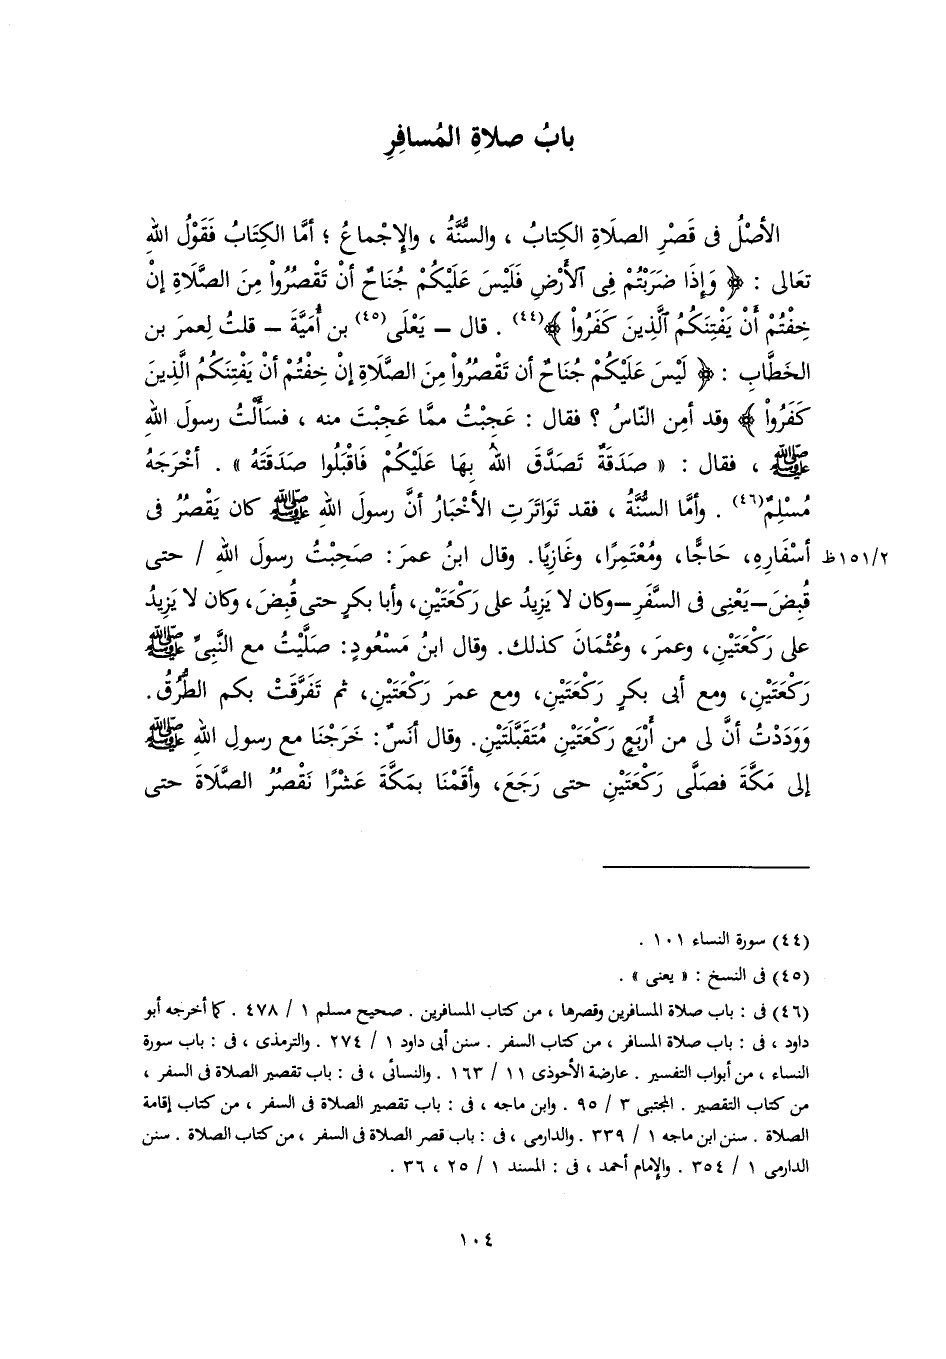 بابُ صلاةِ المُسافِرِ
الأصْلُ فى قَصْرِ الصلاةِ الكِتابُ ، والسُّنَّةُ ، والإجْماعُ ؛ أمَّا الكِتَابُ فَقَوْلُ اللهِ
تعَالى : ﴿ وَإذَا ضَرَبْتُمْ فِى ٱلْأَرْضِ فَلَيْسَ عَلَيْكُمْ جُنَاحٌ أنْ تَقْصُرُواْ مِنَ الصَّلَاةِ إنْ
خِفْتُمْ أَنْ يَفْتِنَكُمُ ٱلَّذِينَ كَفَرُواْ ﴾(٤٤) . قال – يَعْلَى(٤٥) بن أُمَيَّةَ – قلتُ لِعمرَ بن
الخَطَّابِ : ﴿ لَيْسَ عَلَيْكُمْ جُنَاحٌ أن تَقْصُرُواْ مِنَ الصَّلَاةِ إنْ خِفْتُمْ أنْ يَفْتِنَكُمُ الَّذِينَ
كَفَرُواْ ﴾ وقد أمِن النّاسُ ؟ فقال : عَجِبْتُ ممَّا عَجِبْتَ منه ، فسَأَلْتُ رسولَ اللهِ
ﷺ ، فقال : « صَدَقَةٌ تَصَدَّقَ اللهُ بِهَا عَلَيْكُمْ فَاقْبَلُوا صَدَقَتَهُ » . أخْرَجَهُ
مُسْلِمٌ(٤٦) . وأمَّا السُّنَّةُ ، فقد تَواتَرَتِ الأخْبَارُ أنَّ رسولَ اللهِ ﷺ كان يَقْصُرُ فى
أسْفَارِه، حَاجًّا، ومُعْتَمِرًا، وغَازِيًا. وقال ابنُ عمرَ: صَحِبْتُ رسولَ اللهِ / حتى ٢/١٥١ظ
قُبِضَ–يَعْنِى فى السَّفَرِ–وكان لا يَزِيدُ على رَكْعَتَيْنِ، وأبا بكرٍ حتى قُبِضَ، وكان لا يَزِيدُ
على رَكْعَتَيْنِ، وعمرَ، وعُثْمَانَ كذلك. وقال ابنُ مَسْعُودٍ: صَلَّيْتُ مع النَّبِىِّ ﷺ
رَكْعَتَيْنِ، ومع أبى بكرٍ رَكْعَتَيْنِ، ومع عمرَ رَكْعَتَيْنِ، ثم تَفَرَّقَتْ بكم الطُّرُقُ.
وَوَدَدْتُ أنَّ لى من أَرْبَعٍ رَكْعَتَيْنِ مُتَقَبَّلَتَيْنِ. وقال أنَسٌ: خَرَجْنَا مع رسولِ اللهِ ﷺ
إلى مَكَّةَ فصَلَّى رَكْعَتَيْنِ حتى رَجَعَ، وأقَمْنَا بمَكَّةَ عَشْرًا نَقْصُرُ الصَّلَاةَ حتى
(٤٤) سورة النساء ١٠١ .
(٤٥) فى النسخ : « يعنى » .
(٤٦) فى : باب صلاة المسافرين وقصرها ، من كتاب المسافرين . صحيح مسلم ١ / ٤٧٨ . كما أخرجه أبو
داود ، فى : باب صلاة المسافر ، من كتاب السفر . سنن أبى داود ١ / ٢٧٤ . والترمذى ، فى : باب سورة
النساء ، من أبواب التفسير . عارضة الأحوذى ١١ / ١٦٣ . والنسائى ، فى : باب تقصير الصلاة فى السفر ،
من كتاب التقصير . المجتبى ٣ / ٩٥ . وابن ماجه ، فى : باب تقصير الصلاة فى السفر ، من كتاب إقامة
الصلاة . سنن ابن ماجه ١ / ٣٣٩ . والدارمى ، فى : باب قصر الصلاة فى السفر ، من كتاب الصلاة . سنن
الدارمى ١ / ٣٥٤ . والإمام أحمد ، فى : المسند ١ / ٢٥ ، ٣٦ .
١٠٤